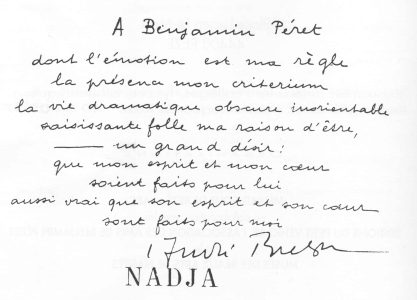 A Benjamin Péret
dont l'émotion est ma règle
la présence mon criterium
la vie dramatique obscure inorientable
saisissante folle ma raison d'être,
—— un grand désir:
que mon esprit et mon cœur
soient faits pour lui
aussi vrai que son esprit et son cœur
sont faits pour moi
André Breton
NADJA